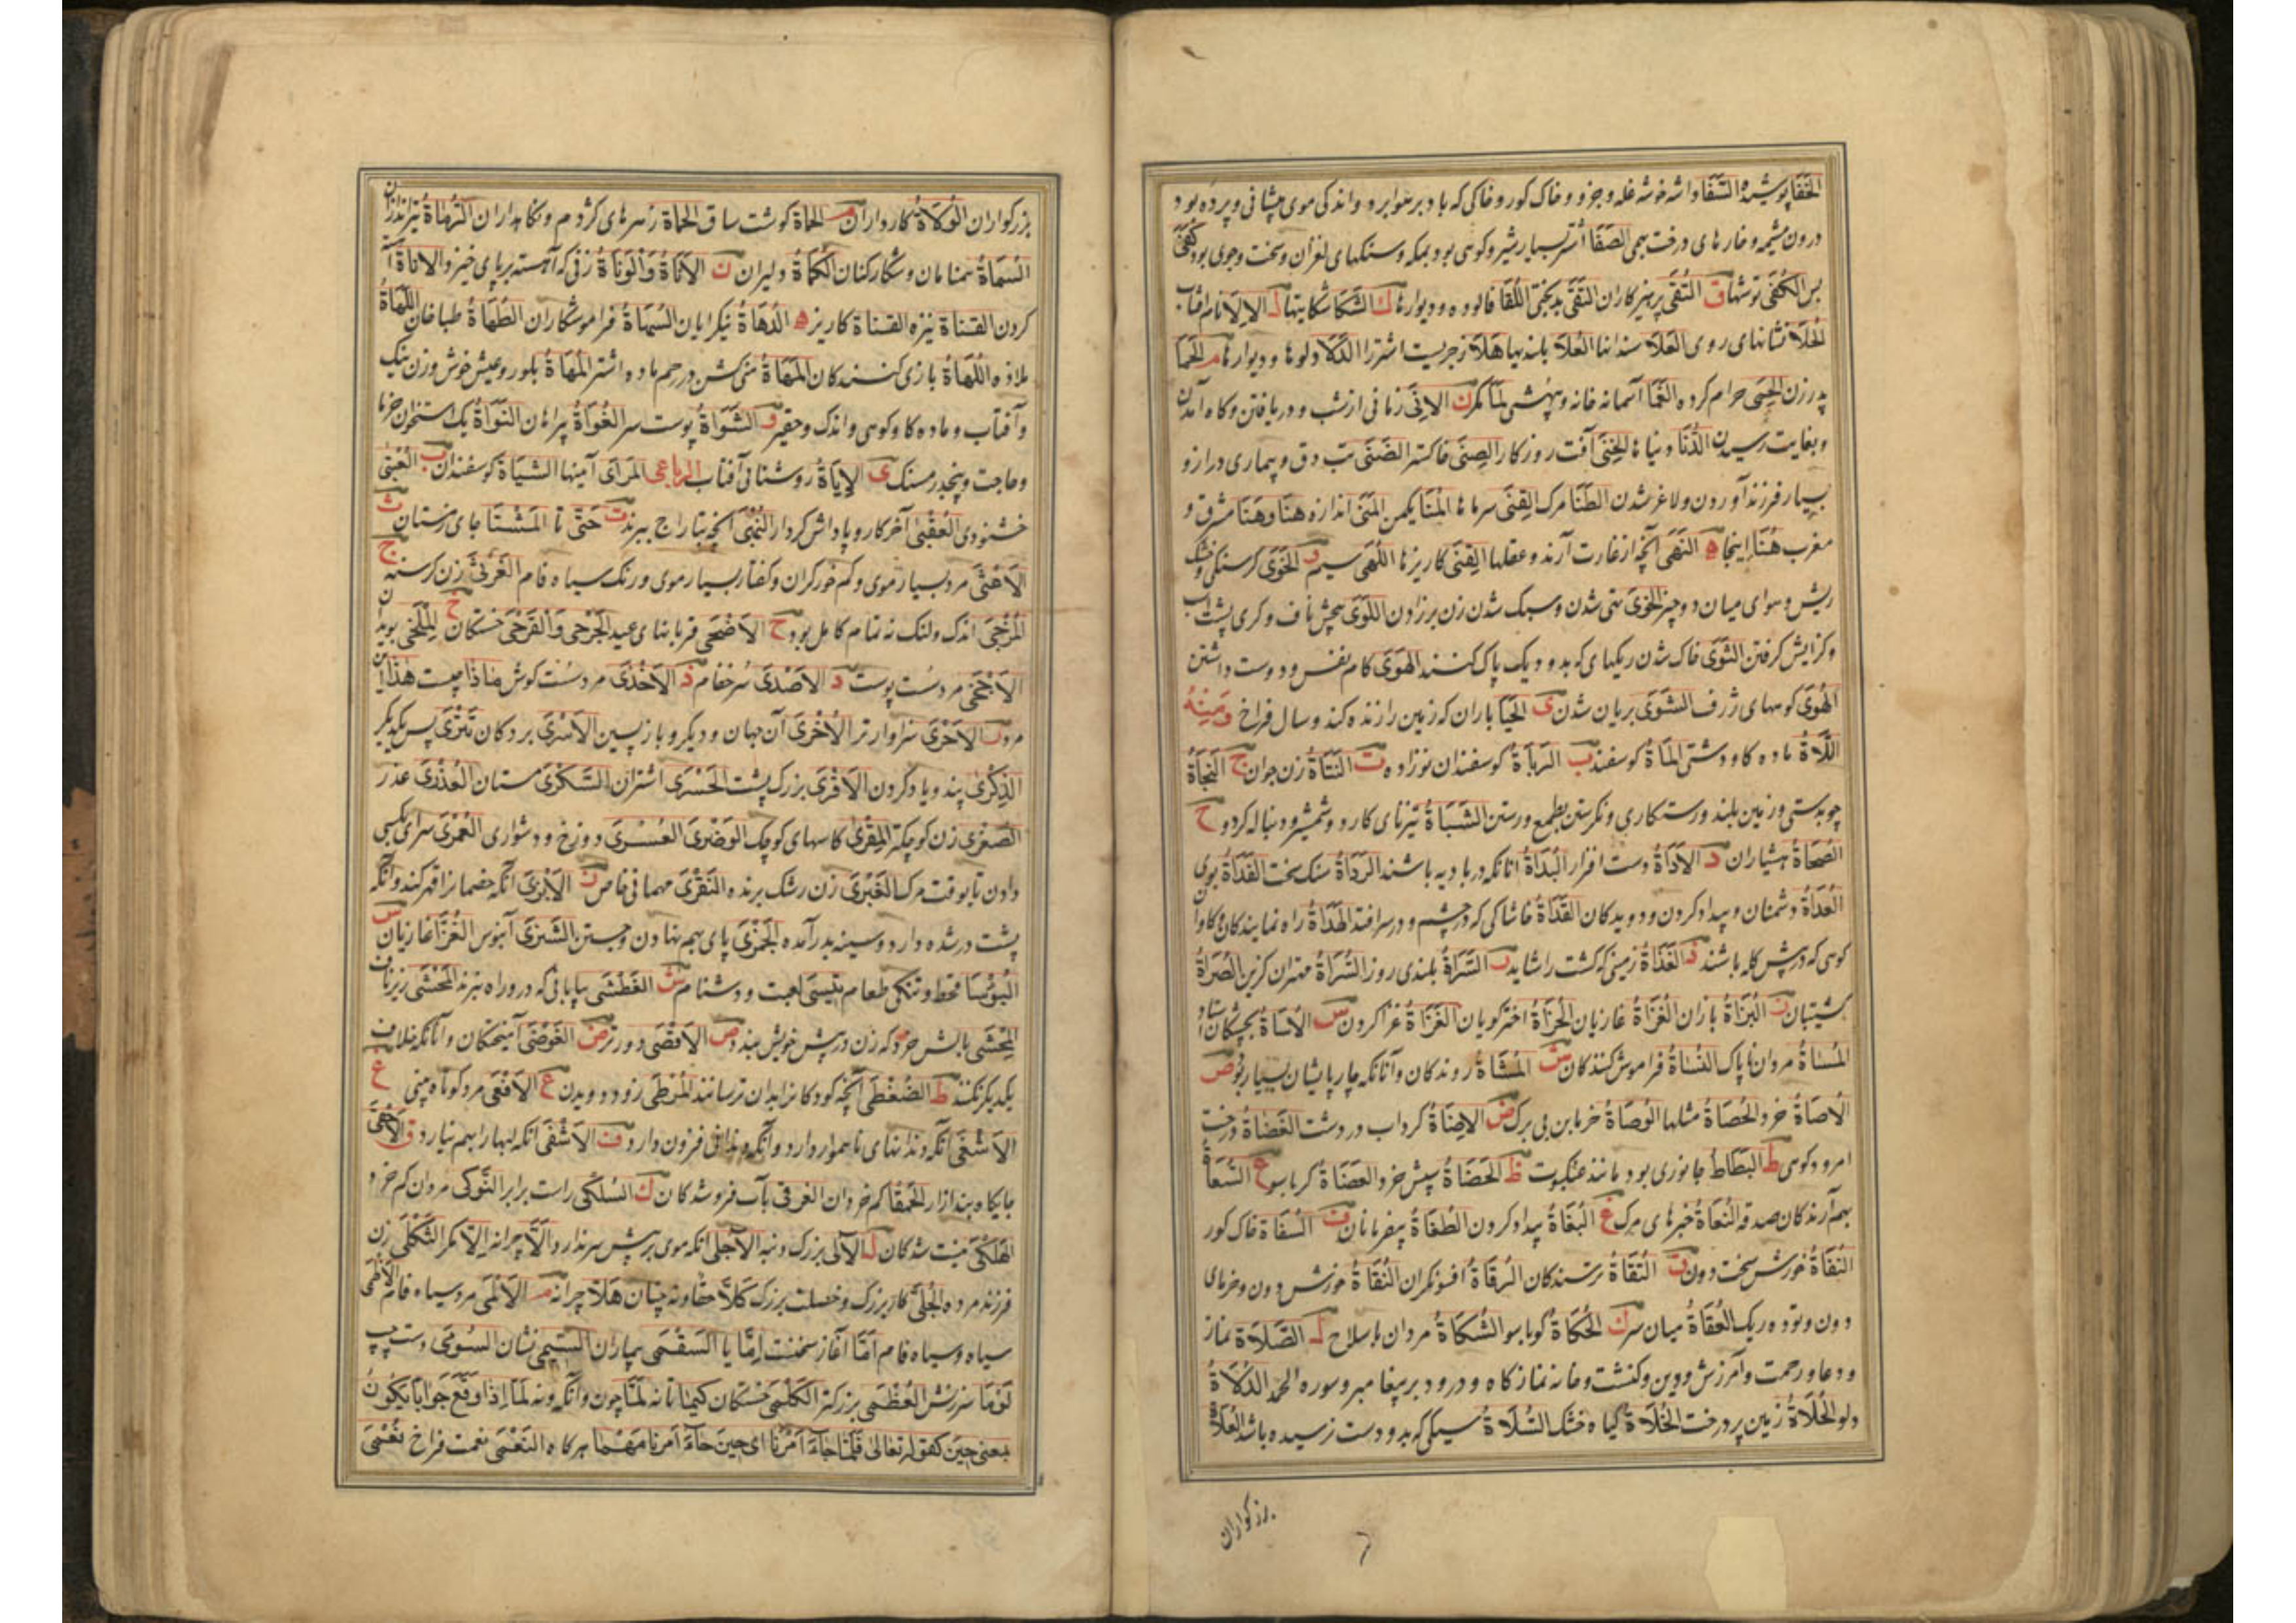 الخفا پوشیده السفا داسه خوشه غله و جزو و خاک کور و خاکی که باد بر هوا برد و اندکی موی پیشانی و پرده بود
درون مشیمه و خارهای درخت بهمی الصفا اشتر بسیار شیر و کوهی بود بمکه و سنکهای لغزان و سخت و جوی بود کفی
بس الکفی توشها ق التقی پرهیزکاران النقی بدبختی اللقا فالوده و دیوارها ك الشکا شکایتها ل الالا نام افتاب
الجلا نشانهای روی العلا سندانها العلا بلندیها هلا زجریست اشتر را الدلا دلوها و دیوارها م الحما
پدر زن الحمی حرام کرده الغما آسمانه خانه و بیهشی لما مکر ن الانی زمانی از شب و دریافتن و کاه آمدن
و بغایت رسیدن الدنا دنیاها الخنی آفت روزکار الصنی خاکستر الضنی تب دق و بیماری دراز و
بسیار فرزند آوردن و لاغر شدن الطنا مرک القنی سرماها المنا یکمن المنی اندازه هنا و هنا مشرق و
مغرب هنا اینجا ه النهی آنچه از غارت آرند و عقلها القنی کاریزها اللهی سیم و الخوی کرسنکی و خشک
ریش و هوای میان دو چیز الخوی تهی شدن و سبک شدن زن بر زادن اللوی پیچش ناف و کری پشت اسب
و کرایش کرفتن الثوی خاک شدن ریکهای که بدو دیک پاک کنند الهوی کام نفس و دوست داشتن
الهوی کوههای ژرف الشوی بریان شدن ی الحیا باران که زمین را زنده کند و سال فراخ ومنه
اللاة ماده کاو دشتی الماة کوسفند ب الرباة کوسفندان نوزاده ت النتاة زن جوان ج النجاة
چوبدستی و زمین بلند و رستکاری و نکرستن بطمع و رستن الشباة تیزنای کارد و شمشیر و دنباله کژدم ح
الصحاة هشیاران د الاداة دست افزار البداة انانکه در بادیه باشند الرداة سنک سخت القداة بوی
العداة دشمنان و بیداد کردن و دویدکان القذاة خاشاکی که در چشم و در سر افتد الهداة راه نمایندکان و کاوان
کوهی که در پیش کله باشند ذ الغذاة زمینی که کشت را شاید ر السراة بلندی روز السراة مهتران کزین الصراة
کشتیبان ز البزاة بازان الغزاة غازیان الحزاة اخترکویان الغزاة غزا کردن س الاساة بجشکان استاد
المساة مردان ناپاک النساة فراموش کنندکان ش المشاة روندکان و آنانکه چارپایشان بسیار بود ص
الاصاة خرد الحصاة مثلها الوصاة خرمابن بی برک ض الاضاة کرداب در دشت الغضاة درخت
امرود کوهی ط البطاط جانوری بود مانند عنکبوت ظ الحضاة سپش خرد العضاة کرباسو ع السعاة
بهم آرندکان صدقه النعاة خبرهای مرک غ البغاة بیداد کردن الطغاة بیفرمانان ف السفاة خاک کور
النفاة خورش سخت دون ق التقاة ترسندکان الرقاة افسونکران النقاة خورش دون و خرمای
دون و توده ریک العقاة میان سر ك الحکاة کوباسو الشکاة مردان با سلاح ل الصلاة نماز
و دعا و رحمت و آمرزش و دین و کنشت و خانه نمازکاه و درود بر پیغامبر و سوره الحمد الدلاة
دلو الخلاة زمین پر درخت الخلاة کیاه خشک السلاة سیکی که بدو دست نرسیده باشد العلاة
بزرکواران
۶
بزرکواران الولاة کارداران م الحماة کوشت ساق الحماة زهرهای کژدم و نکاهداران الرماة تیراندازان
السماة همنامان و شکارکنان الکماة دلیران ن الاناة والوناة زنی که آهسته بر پای خیزد والاناة آ
کردن القناة نیزه القناة کاریز ه الدهاة نیکرایان السهاة فراموشکاران الطهاة طباخان اللهاة
ملازه اللهاة بازی کنندکان المهاة منی کشن در رحم ماده اشتر المهاة بلور و عیش خوش و زن نیک
و آفتاب و ماده کاو کوهی و اندک و حقیر و الشواة پوست سر الغواة پیراهان النواة یک استخوان خرما
و حاجت و پنجدرمسنک ی الایاة روشنائی آفتاب الرباعی المرای آینها الشیاة کوسفندان ب العتبی
خشنودی العقبی آخر کار و پاداش کردار النهبی آنچه بتاراج ببرند ت حتی تا المشتا جای زمستان ث
الاعثی مرد بسیار موی و کم خورکران و کفتار بسیار موی و رنک سیاه فام الغرثی زن کرسنه ج
المزجی اندک و لنک نه تمام کامل بود ح الاضحی قربانیهای عید الجرحی والقرحی خستکان خ المتلخی بویدان
الاجخی مرد سست پوست د الاصدی سرخفام ذ الاخذی مرد سست کوش ماذا چیست هذا این
مرد ر الاحری سزاوارتر الاخری آن جهان و دیکر و بازپسین الاسری بردکان تتری پس یکدیکر
الذکری پند و یاد کردن الاقری بزرک پشت الحسری اشتران السکری مستان العذری عذر
الصغری زن کوچکتر المقری کاسهای کوچک الوضری العسری دوزخ و دشواری العمری سرای بکسی
دادن تا بوقت مرک الغیری زن رشک برنده النقری مهمانی خاص ز الابزی آنکه خصمانرا قهر کند و آنکه
پشت درشده دارد و سینه بدرآمده الجمزی پای بهم نهادن و جستن الشیزی آبنوس الغزا غازیان س
البؤسا قحط و تنکی طعام تیسی لعبت و دشنام ش الغطشی بیابانی که درو راه نبرند المحشی زیر ناف
المحشی بالش خرد که زن در پس خویش بندد ص الاقصی دورتر ض الفوضی آمیختکان و آنانکه خلاف
یکدیکر نکنند ط الضغطی آنچه کودکانرا بدان ترسانند المرطی زود دویدن ع الافعی مرد کوتاه بینی غ
الاشغی آنکه دندانهای ناهموار دارد و آنکه دندانی فزون دارد ف الاشفی آنکه لبها را بهم نیارد ق الاعقی
جایکاه بند ازار الحمقا کم خردان الغرقی بآب فروشدکان ك السلکی راست برابر النوکی مردان کم خرد
الهلکی نیست شدکان ل الالی بزرک دنبه الاجلی آنکه موی بر پیش سر ندارد الا چرا نه الا مکر الثکلی زن
فرزند مرده الجلی کار بزرک و خصلت بزرک کلا حقا و نه چنان هلا چرا نه م الالمی مرد سیاه فام الاظمی
سیاه و سیاه فام اما آغاز سخنست اما یا السقمی بیماران السیمی نشان السومی دست چپ
لوما سرزنش العظمی بزرکتر الکلمی خستکان کیما تا نه لما چون و آنکه و نه لما اذا وقع جوابا یکون
بمعنی حین کقوله تعالی فلما جاء امرنا ای حین جاء امرنا مهما هرکاه النعمی نعمت فراخ نعمی